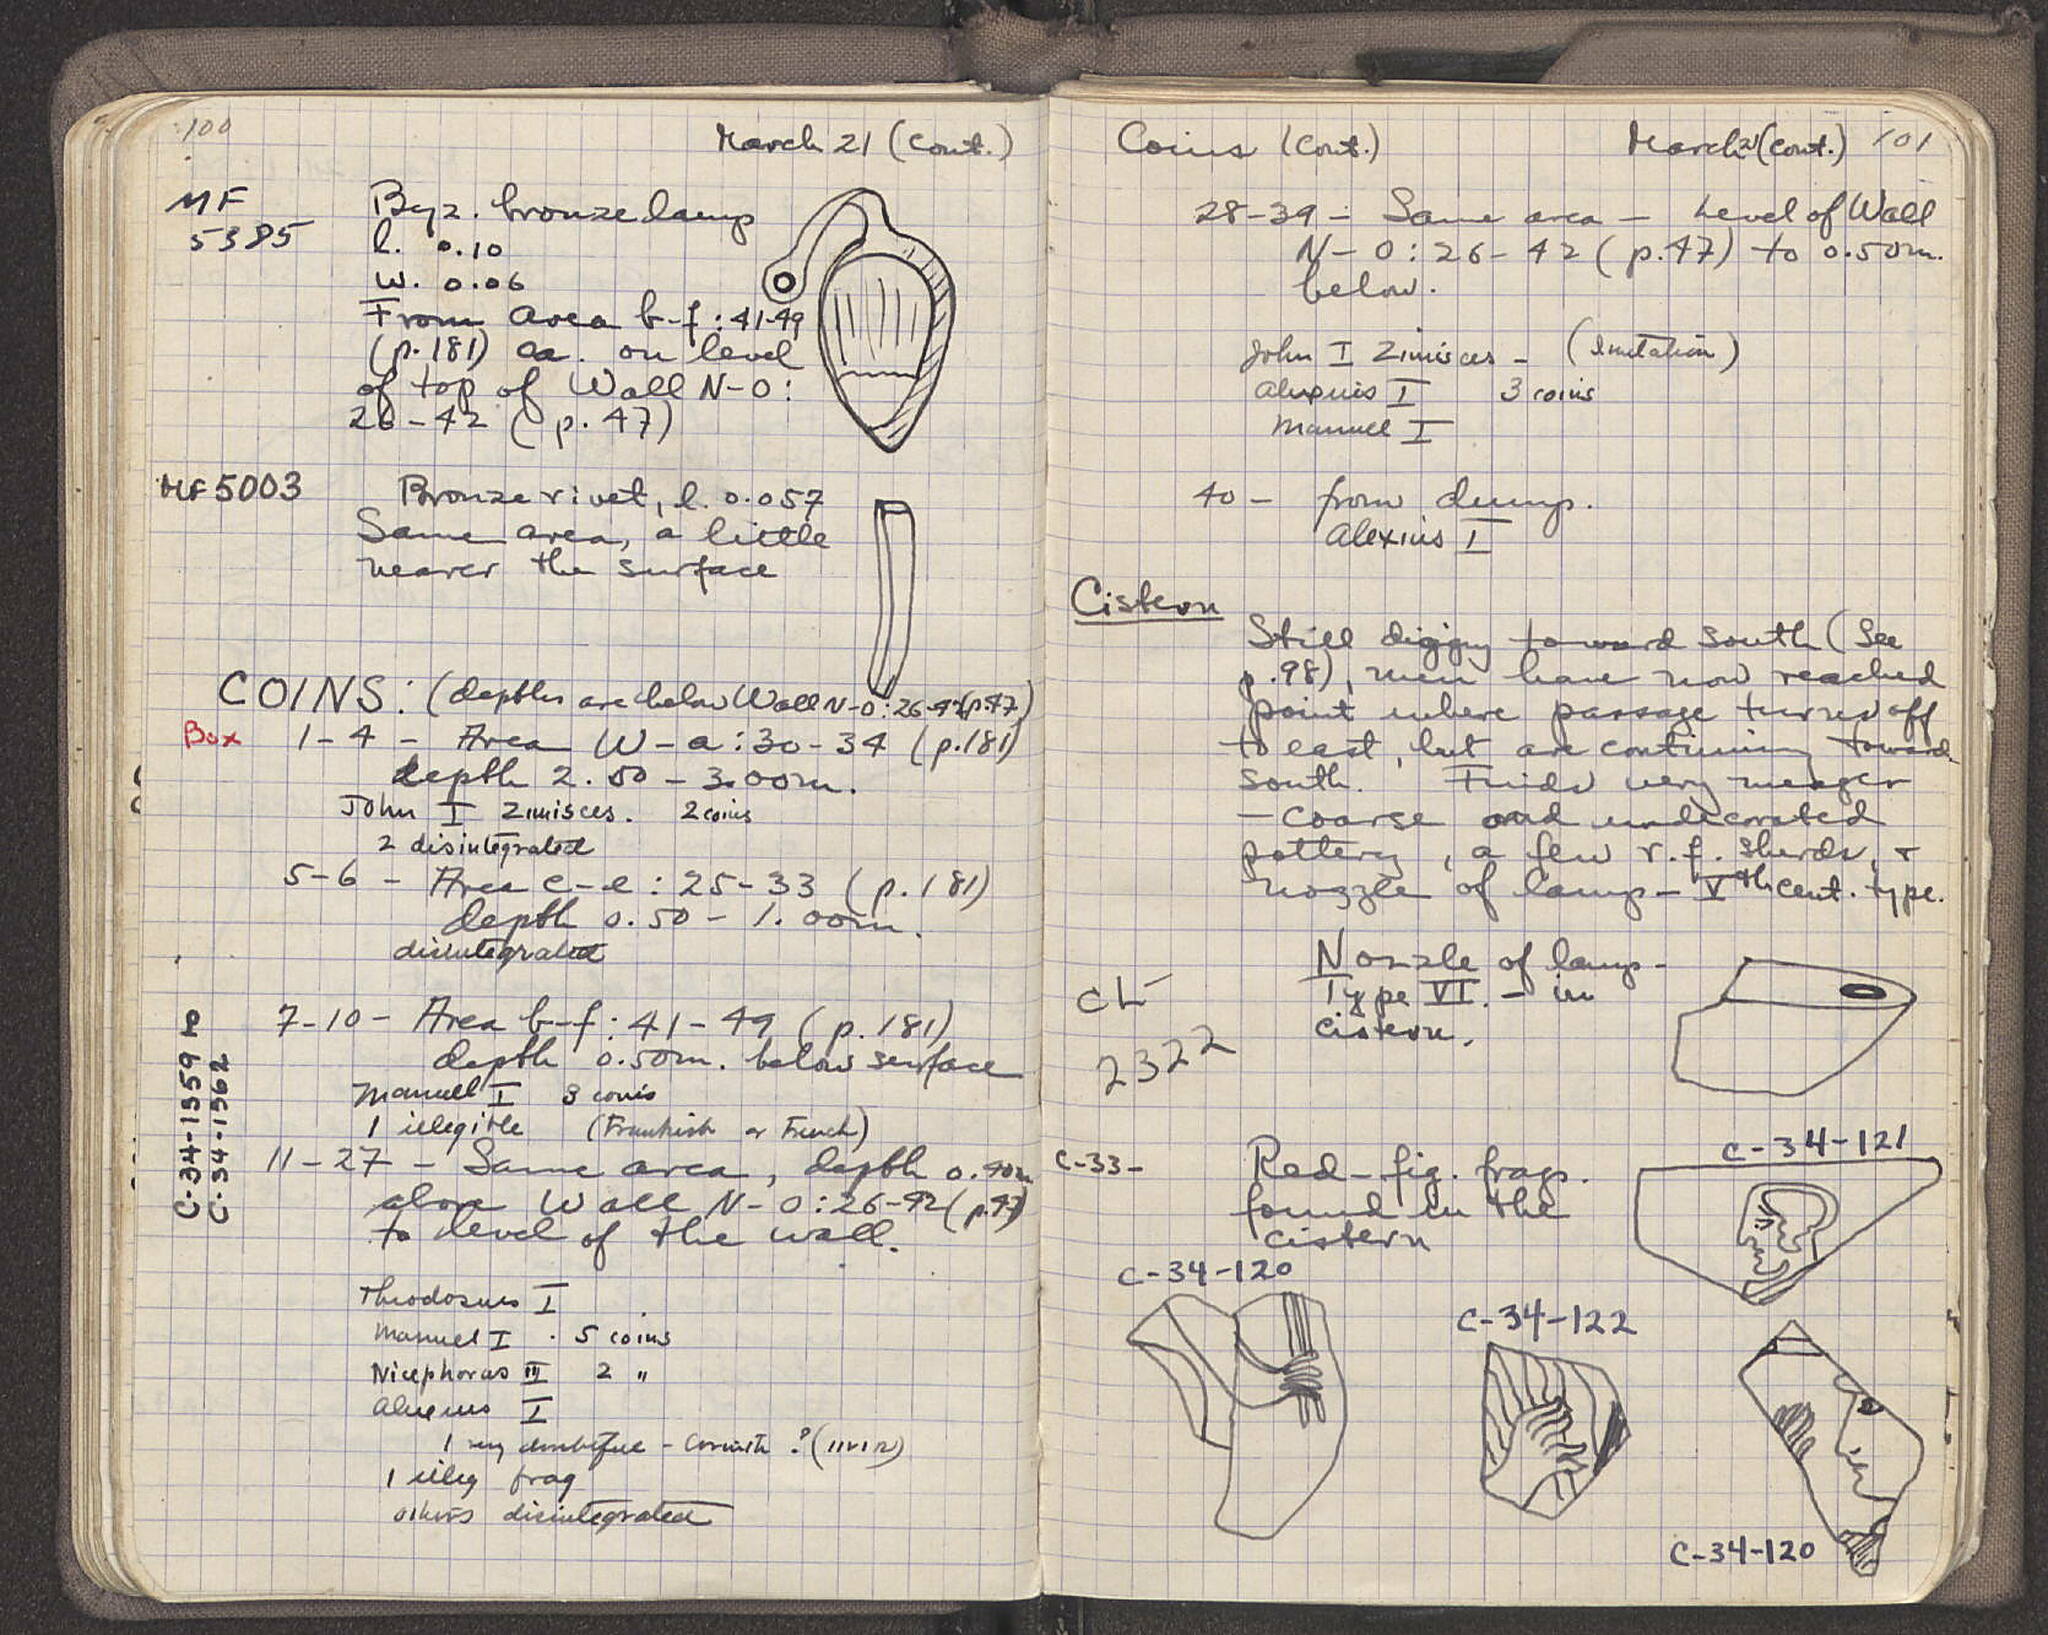 100
March 21 (cont.)
MF
5385
Byz. bronze lamp
l. 0.10
w. 0.06
From area b-f:41-49
(p.181) ca. on level
of top of Wall N-O:
26-42 (p. 47)
MF 5003
Bronze rivet, l. 0.057
Same area, a little
nearer the surface
COINS: (depths are below Wall N-O:26-42(p.47)
Box
1-4 - Area W-a:30-34 (p.181)
depth 2.50-3.00m.
John I Zimisces. 2 coins
2 disintegrated
5-6 - Area c-e:25-33 (p.181)
depth 0.50-1.00m.
disintegrated
7-10 - Area b-f:41-49 (p.181)
depth 0.50m. below surface
Manuel I 3 coins
1 illegible (Frankish or French)
11-27 - Same area, depth 0.40m
above Wall N-O:26-42(p.47)
to level of the wall.
C-34-1559 to
C-34-1562
Theodosius I
Manuel I . 5 coins
Nicephorus III 2 "
Alexius I
1 very doubtful - Corinth ? (IIVIR)
1 illeg frag
others disintegrated
Coins (cont.)
March 21 (cont.) 101
28-39 - Same area - Level of Wall
N-O:26-42 (p.47) to 0.50m.
below.
John I Zimisces - (Imitation)
Alexius I 3 coins
Manuel I
40 - from dump.
Alexius I
Cistern
Still digging toward south (See
p.98), men have now reached
point where passage turns off
to east, but are continuing toward
south. Finds very meager
- coarse and undecorated
pottery, a few r.f. sherds, +
nozzle of lamp - Vth cent. type.
CL
2322
Nozzle of lamp -
Type VI. - in
cistern.
C-33-
Red-fig. frags.
found in the
cistern
C-34-121
C-34-120
C-34-122
C-34-120